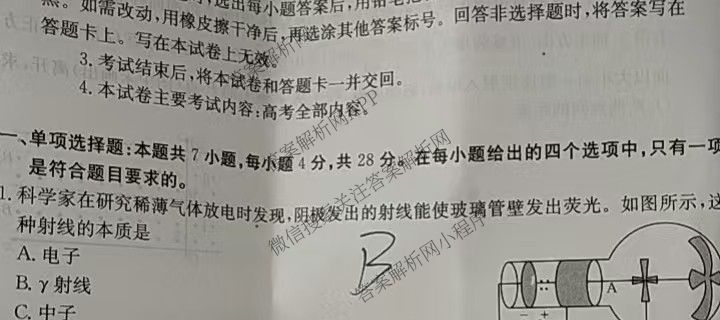 如需改动,用橡皮擦干净后,再选涂其他答案标号。回答非选择题时,将答案写在
答题卡上。写在本试卷上无效。
3.考试结束后,将本试卷和答题卡一并交回。
4.本试卷主要考试内容:高考全部内容。
一、单项选择题:本题共7小题,每小题4分,共28分。在每小题给出的四个选项中,只有一项
是符合题目要求的。
1.科学家在研究稀薄气体放电时发现,阴极发出的射线能使玻璃管壁发出荧光。如图所示,这
种射线的本质是
A.电子
B.γ射线
C.中子
B
A
- +
答案解析网APP
微信搜索关注答案解析网
答案解析网小程序